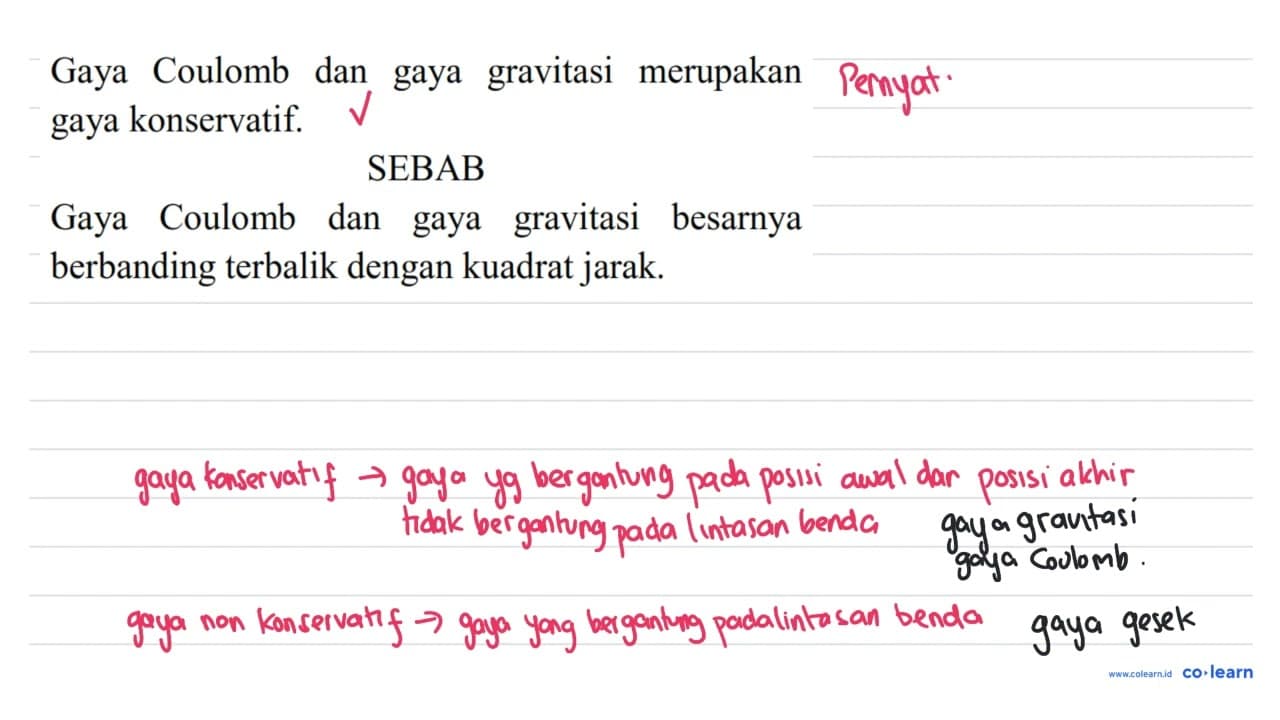 Gaya Coulomb dan gaya gravitasi merupakan
gaya konservatif. √
Pernyat.
SEBAB
Gaya Coulomb dan gaya gravitasi besarnya
berbanding terbalik dengan kuadrat jarak.
gaya konservatif → gaya yg bergantung pada posisi awal dan posisi akhir
tidak bergantung pada lintasan benda
gaya gravitasi
gaya Coulomb.
gaya non konservatif → gaya yang bergantung pada lintasan benda
gaya gesek
www.colearn.id co·learn